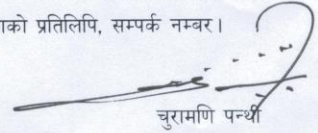 ाको प्रतिलिपि, सम्पर्क नम्बर।
चुरामणि पन्थी